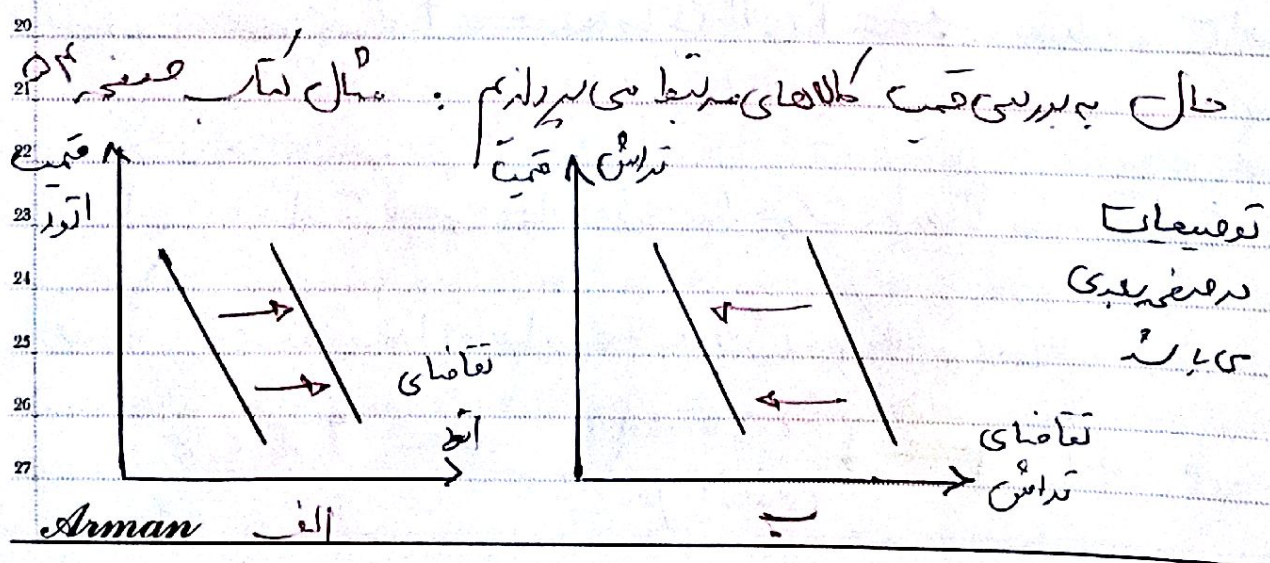 20
21
22
23
24
25
26
27
حال به بررسی قیمت کالاهای مرتبط می پردازیم : مثال کتاب صفحه ۵۴
قیمت
اتود
تقاضای
اتود
الف
قیمت تراش
تقاضای
تراش
ب
توضیحات
در صفحه بعدی
می باشد
Arman